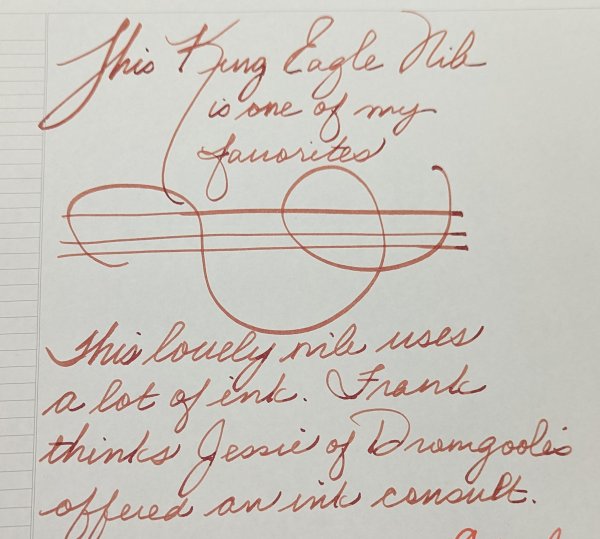 This King Eagle Nib
is one of my
favorites
This lovely nib uses
a lot of ink. Frank
thinks Jessie of Dromgoole's
offered an ink consult.